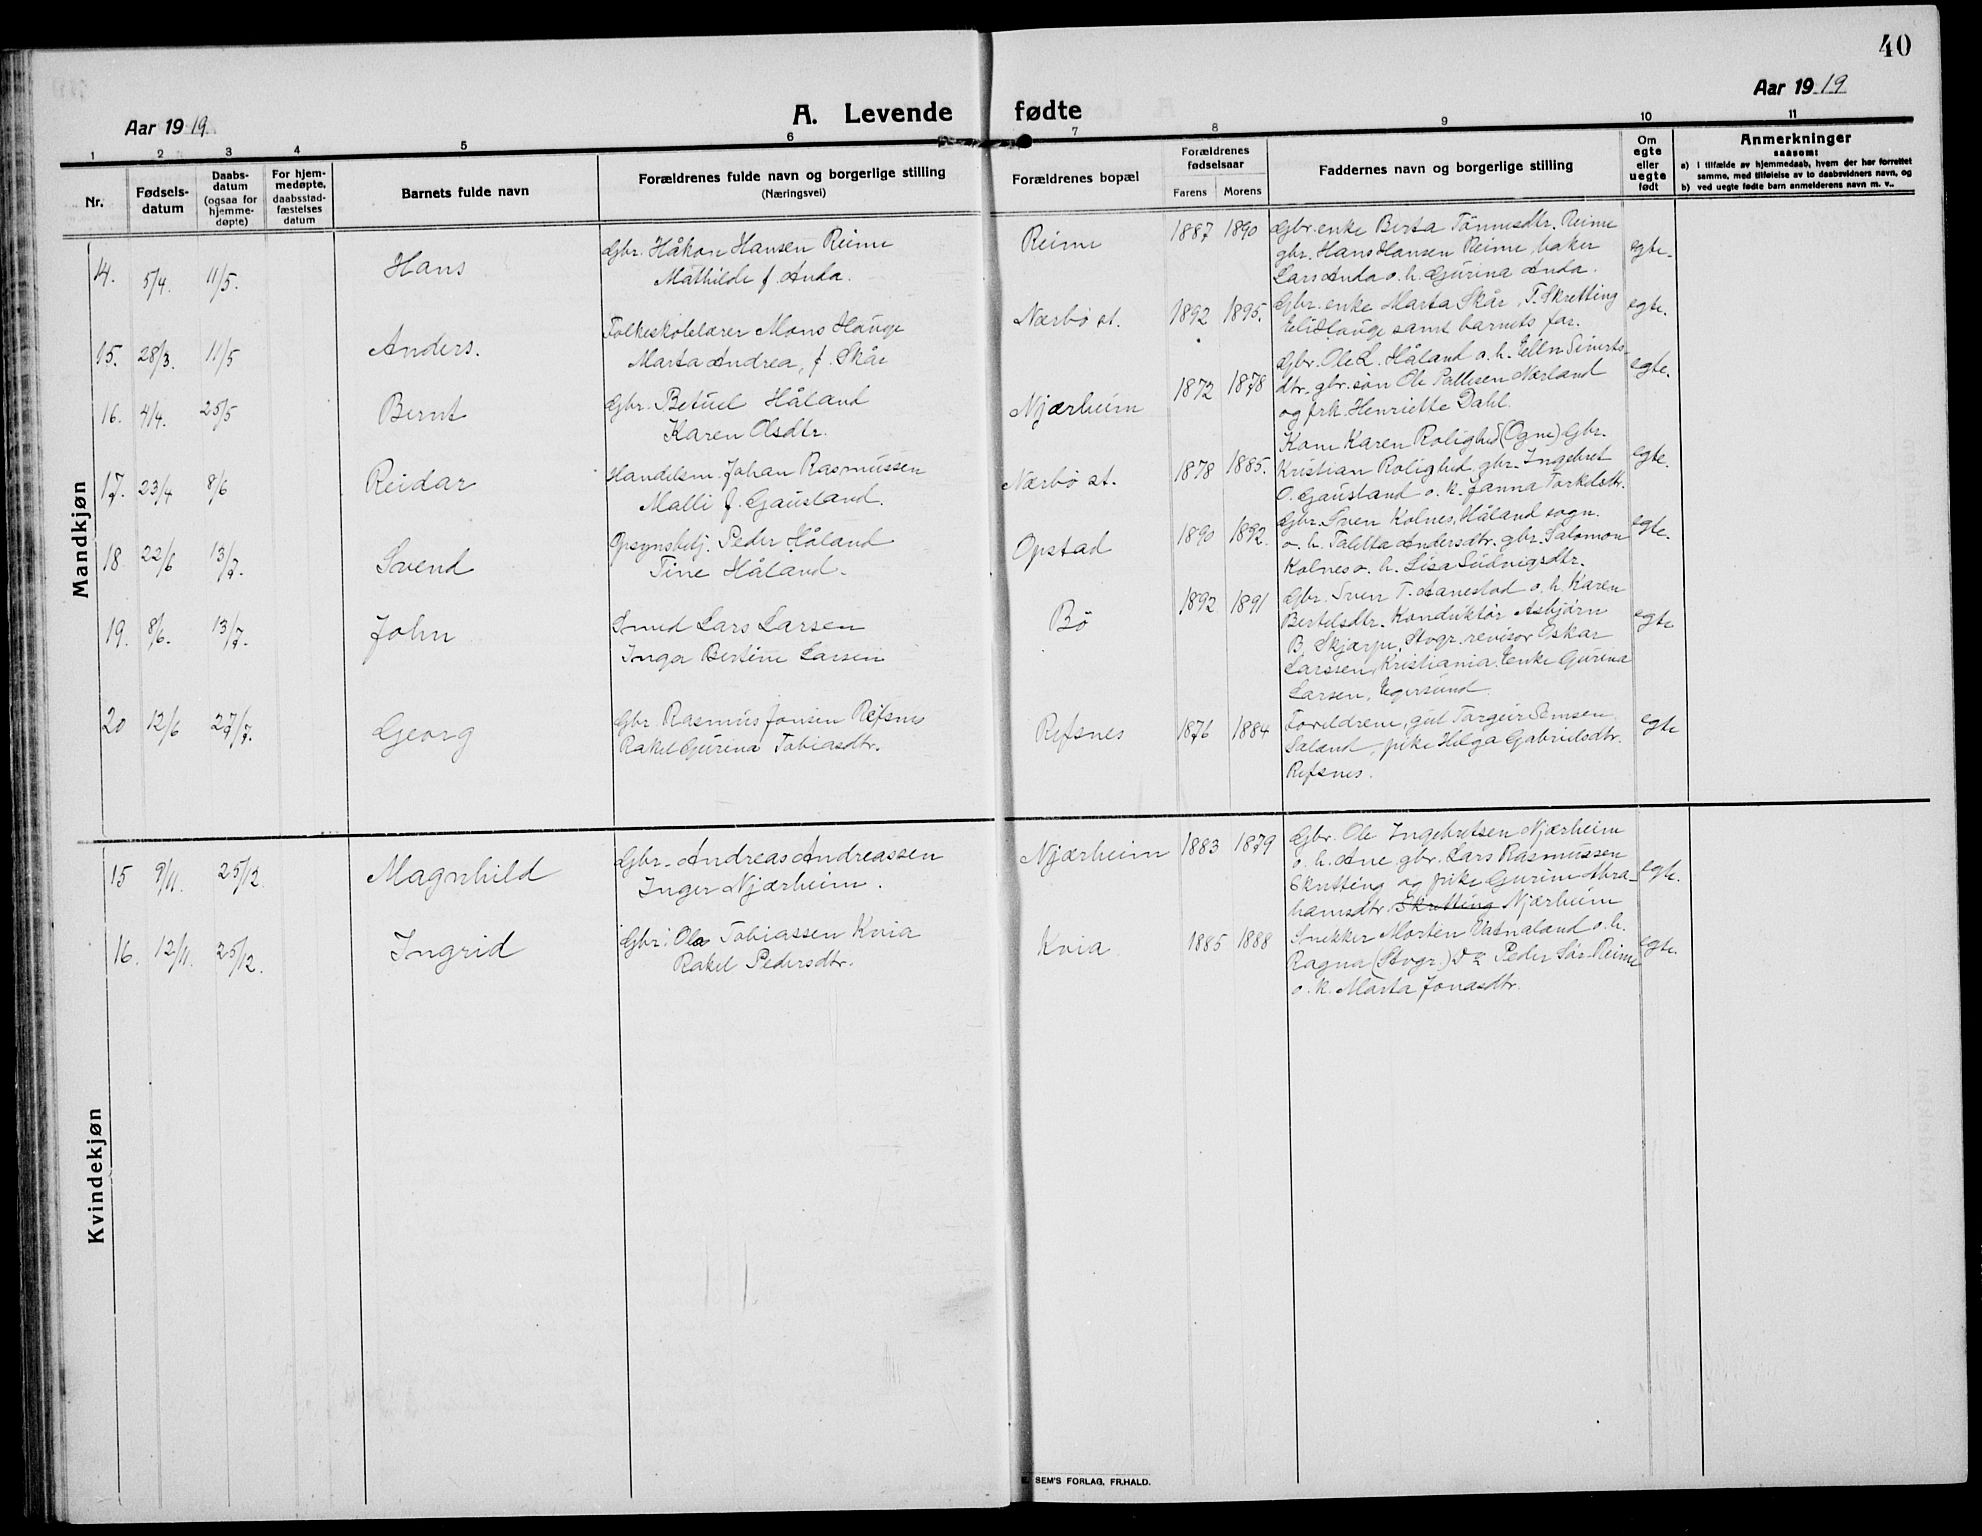 40
Aar 1919
A. Levende fødte
Aar 1919
1 2 3 4 5 6 7 8 9 10 11
Nr.
Fødsels-
datum
Daabs-
datum
(ogsaa for
hjemme-
døpte)
For hjem-
medøpte,
daabsstad-
fæstelses
datum
Barnets fulde navn
Forældrenes fulde navn og borgerlige stilling
(Næringsvei)
Forældrenes bopæl
Forældrenes
fødselsaar
Farens Morens
Faddernes navn og borgerlige stilling
Om
egte
eller
uegte
født
Anmerkninger
saasom:
a) i tilfælde av hjemmedaab, hvem der har forrettet
samme, med tilføielse av to daabsvidners navn, og
b) ved uegte fødte barn anmelderens navn m. v..
Mandkjøn
14. 5/4. 11/5. Hans
Gbr. Håkon Hansen Reime
Mathilde f. Anda.
Reime 1887 1890
Gbr. enke Berta Tönnesdtr. Reime
gbr. Hans Hansen Reime, baker
Lars Anda o. h. Gurina Anda.
egte.
15. 28/3. 11/5 Anders.
Folkeskolelærer Mons Hauge
Marta Andrea, f. Skår
Nærbö st. 1892 1895.
Gbr. enke Marta Skår, T. Skretting
Eli Hauge samt barnets far.
egte.
16. 4/4. 25/5 Bernt
Gbr. Betuel Håland
Karen Olsdtr.
Njærheim 1872 1878
Gbr. Ole L. Håland o. h. Ellen Siverts-
dtr. gbr. sön Ole Pallesen Nærland
og frk. Henriette Dahl.
egte.
17. 23/4 8/6 Reidar
Handelsm. Johan Rasmussen
Malli f. Gausland.
Nærbö st. 1878 1885.
Kone Karen Rolighed (Ogne) Gbr.
Kristian Rolighed, gbr. Ingebret
O. Gausland o. k. Janna Torkelsdtr.
egte.
18 22/6 13/7. Svend
Opsynsbetj. Peder Håland
Tine Håland.
Opstad 1890 1892.
Gbr. Sven Kolnes, Håland sogn.
o. h. Taletta Andersdtr. gbr. Salomon
Kolnes o. h. Lisa Ludvigsdtr.
egte.
19. 8/6. 13/7. John
Smed Lars Larsen
Inga Bertine Larsen
Bö 1892 1891
Gbr. Sven T. Aanestad o. h. Karen
Bertelsdtr. Konduktör Asbjørn
B. Skjærpe, Stvgr. revisor Oskar
Larssen, Kristiania. Enke Gurina
Larsen, Egersund.
egte
20 12/6 27/7. Georg
Gbr. Rasmus Jonsen Refsnes
Rakel Gurina Tobiasdtr.
Refsnes 1876 1884
Foreldrene, gut Torgeir Simsen
Laland, pike Helga Gabrielsdtr.
Refsnes.
egte
Kvindekjøn
15 9/11. 25/12. Magnhild
Gbr. Andreas Andreassen
Inger Njærheim.
Njærheim 1883 1879
Gbr. Ole Ingebretsen Njærheim
o. h. Ane, gbr. Lars Rasmussen
Skretting og pike Gurine Abra-
hamsdtr. Skretting Njærheim
egte.
16. 12/11. 25/12. Ingrid
Gbr. Ola Tobiassen Kvia
Rakel Pedersdtr.
Kvia 1885 1888
Snekker Morten Vatnaland o. h.
Ragna (Stvgr.) Do Peder Sör-Reime
o. k. Marta Jonasdtr.
egte.
E. SEM'S FORLAG, FR.HALD.